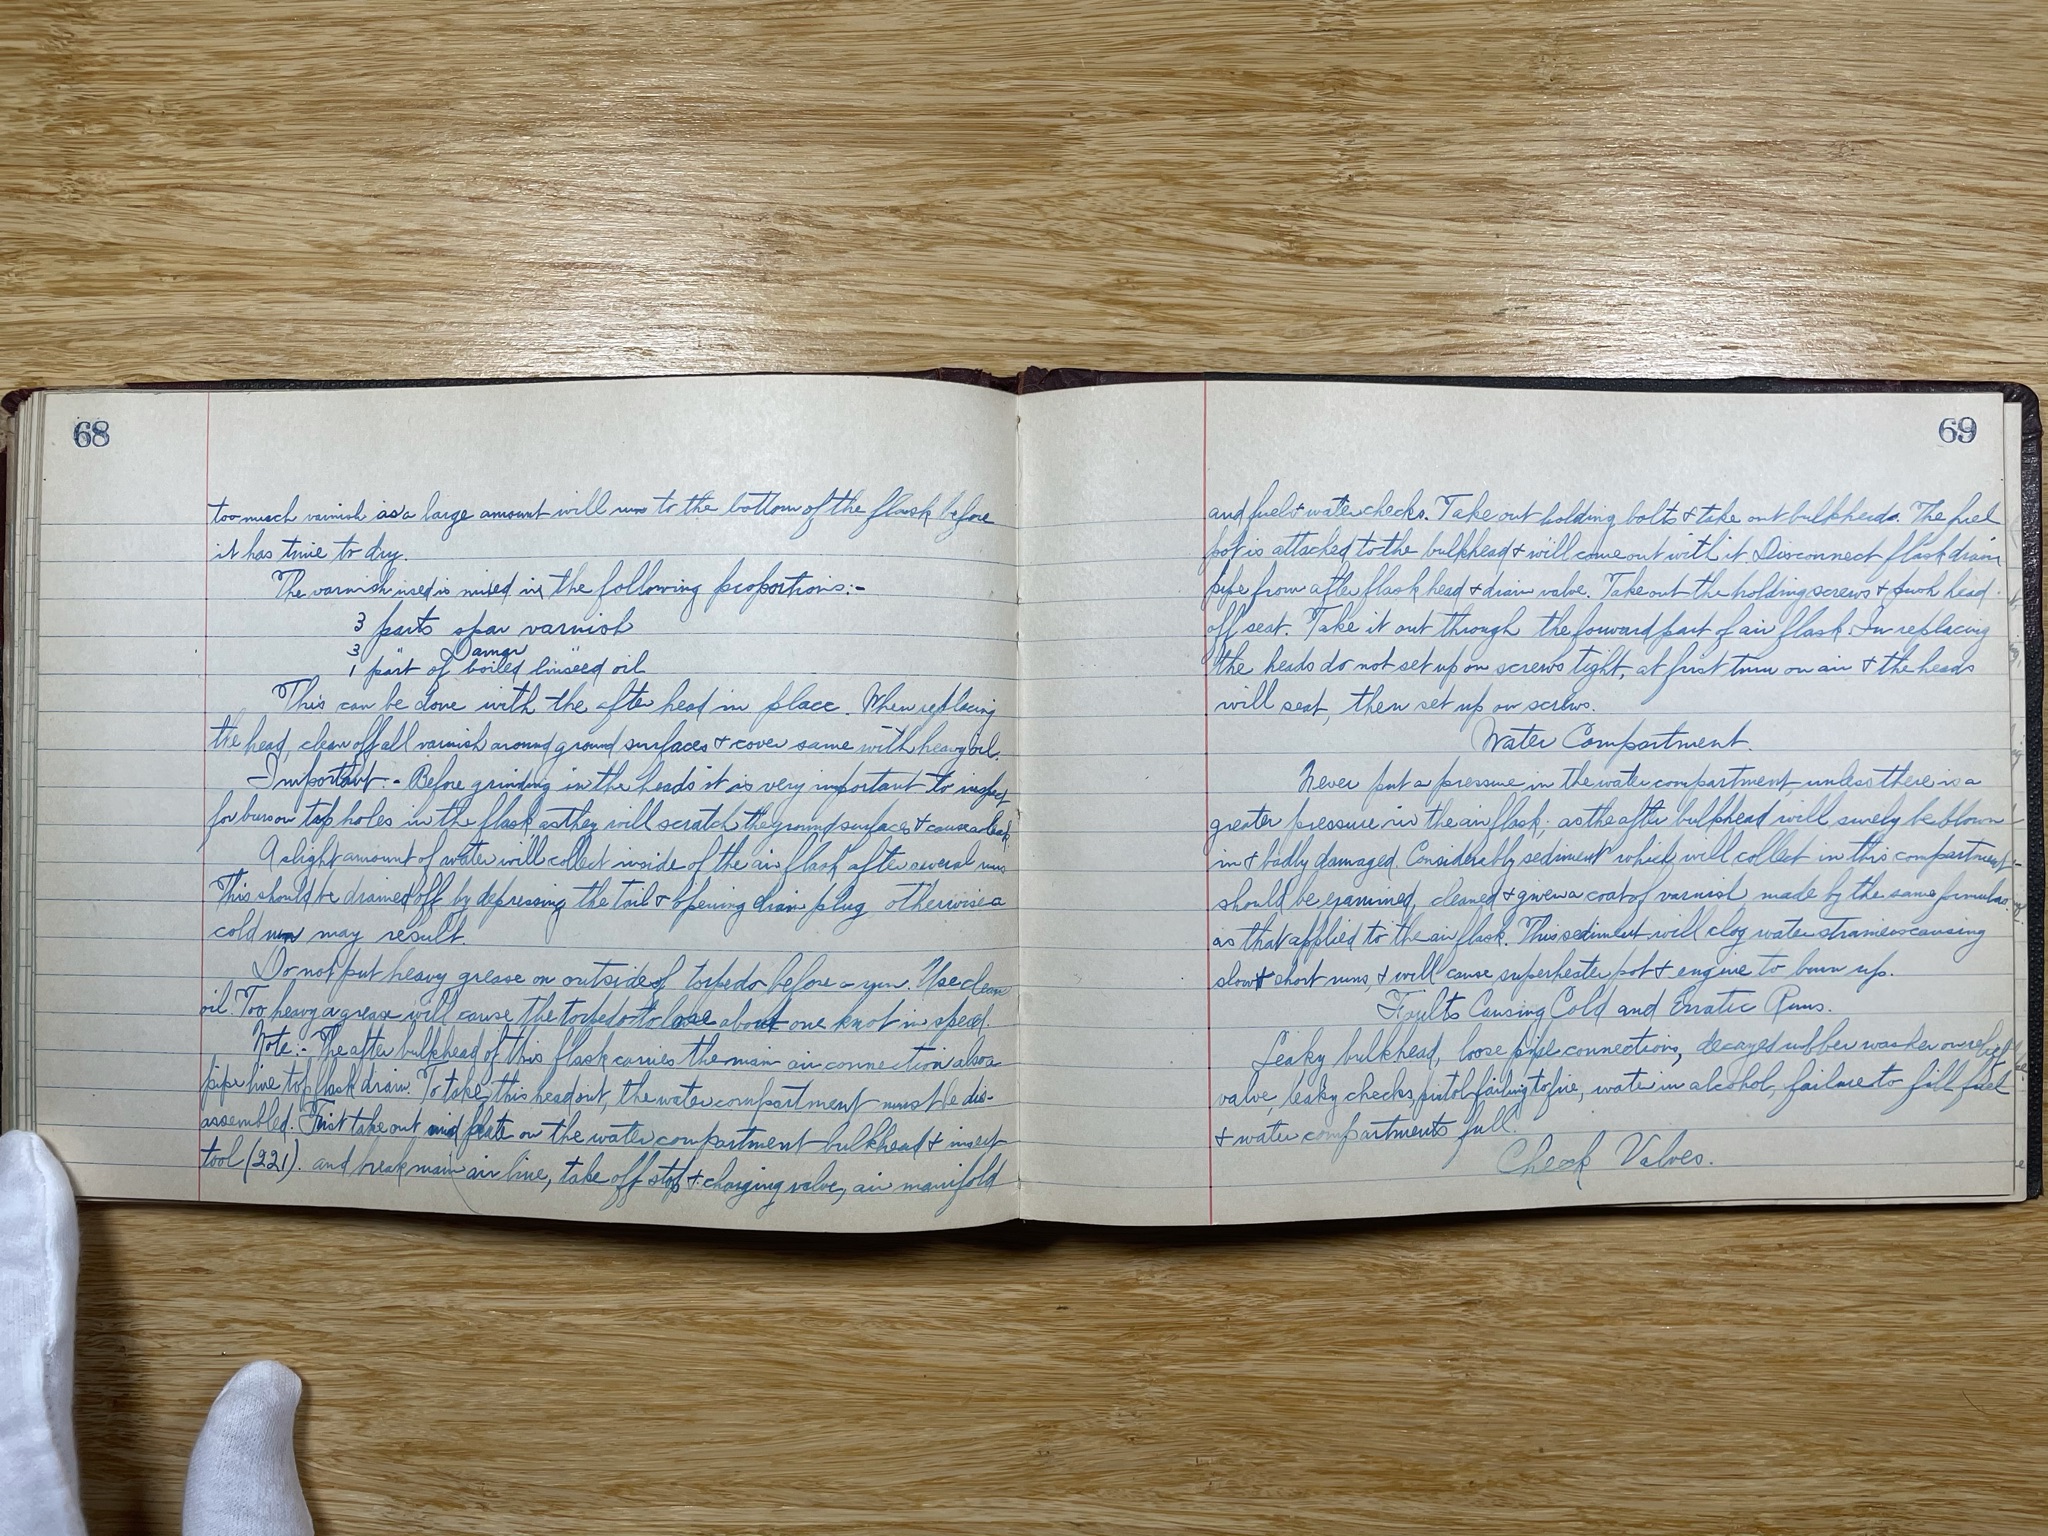 68
too much varnish as a large amount will run to the bottom of the flask before
it has time to dry.
The varnish used is mixed in the following proportions:-
3 parts spar varnish
3 " Damar "
1 part of boiled linseed oil
This can be done with the after head in place. When replacing
the head, clean off all varnish around ground surfaces & cover same with heavy oil.
Important:- Before grinding in the heads it is very important to inspect
for burs on tap holes in the flask as they will scratch the ground surfaces & cause a leak.
A slight amount of water will collect inside of the air flask after several runs
This should be drained off by depressing the tail & opening drain plug otherwise a
cold run may result.
Do not put heavy grease on outside of torpedo before a run. Use clean
oil. Too heavy a grease will cause the torpedo to lose about one knot in speed.
Note:- The after bulkhead of this flask carries the main air connection also a
pipe line to flask drain. To take this head out, the water compartment must be dis-
assembled. First take out plate on the water compartment bulkhead & insert
tool (221). and break main air line, take off stop & charging valve, air manifold
69
and fuel & water checks. Take out holding bolts & take out bulkheads. The fuel
pot is attached to the bulkhead & will come out with it. Disconnect flask drain
pipe from after flask head & drain valve. Take out the holding screws & push head
off seat. Take it out through the forward part of air flask. In replacing
the heads do not set up on screws tight, at first turn on air & the heads
will seat, then set up on screws.
Water Compartment.
Never put a pressure in the water compartment unless there is a
greater pressure in the air flask, as the after bulkhead will surely be blown
in & badly damaged. Considerably sediment which will collect in this compartment
should be examined, cleaned & given a coat of varnish made by the same formula
as that applied to the air flask. This sediment will clog water strainers causing
slow & short runs, & will cause superheater pot & engine to burn up.
Faults Causing Cold and Erratic Runs.
Leaky bulkhead, loose pipe connections, decayed rubber washer on relief
valve, leaky checks, pistol failing to fire, water in alcohol, failure to fill fuel
& water compartments full.
Check Valves.